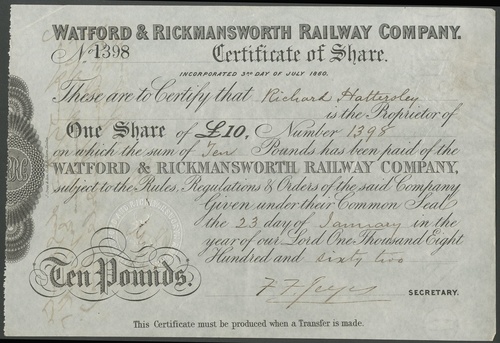 WATFORD & RICKMANSWORTH RAILWAY COMPANY.
No. 1398 Certificate of Share.
INCORPORATED 3RD DAY OF JULY 1860.
These are to Certify that Richard Hattersley
is the Proprietor of
One Share of £10, Number 1398
on which the sum of Ten Pounds has been paid of the
WATFORD & RICKMANSWORTH RAILWAY COMPANY,
subject to the Rules, Regulations & Orders of the said Company
Given under their Common Seal
the 23 day of January in the
year of our Lord One Thousand Eight
Hundred and sixty two
Ten Pounds.
SECRETARY.
This Certificate must be produced when a Transfer is made.